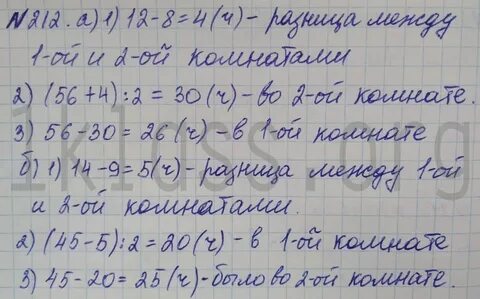 №212. а) 1) 12-8=4(ч) - разница между
1-ой и 2-ой комнатами
2) (56+4):2=30(ч) - во 2-ой комнате.
3) 56-30=26(ч) - в 1-ой комнате
б) 1) 14-9=5(ч) - разница между 1-ой
и 2-ой комнатами.
2) (45-5):2=20(ч) - в 1-ой комнате
3) 45-20=25(ч) - было во 2-ой комнате.
1klass.org